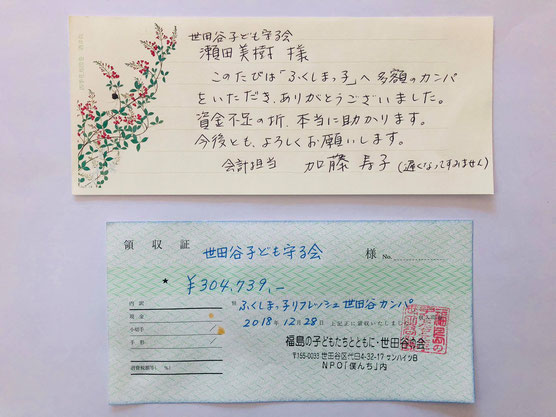 世田谷子ども守る会
瀬田美樹 様
このたびは「ふくしまっ子」へ多額のカンパ
をいただき、ありがとうございました。
資金不足の折、本当に助かります。
今後とも、よろしくお願いします。
会計担当 加藤寿子(遅くなってすみません)
領収証 世田谷子ども守る会 様 No.
★ ¥304,739,-
但 ふくしまっ子リフレッシュ世田谷カンパ
2018年12月28日 上記正に領収いたしました
内訳
現金
小切手
手形
消費税額等( %)
福島の子どもたちとともに・世田谷の会
〒155-0033 世田谷区代田4-32-17 サンハイツB
NPO「僕んち」内